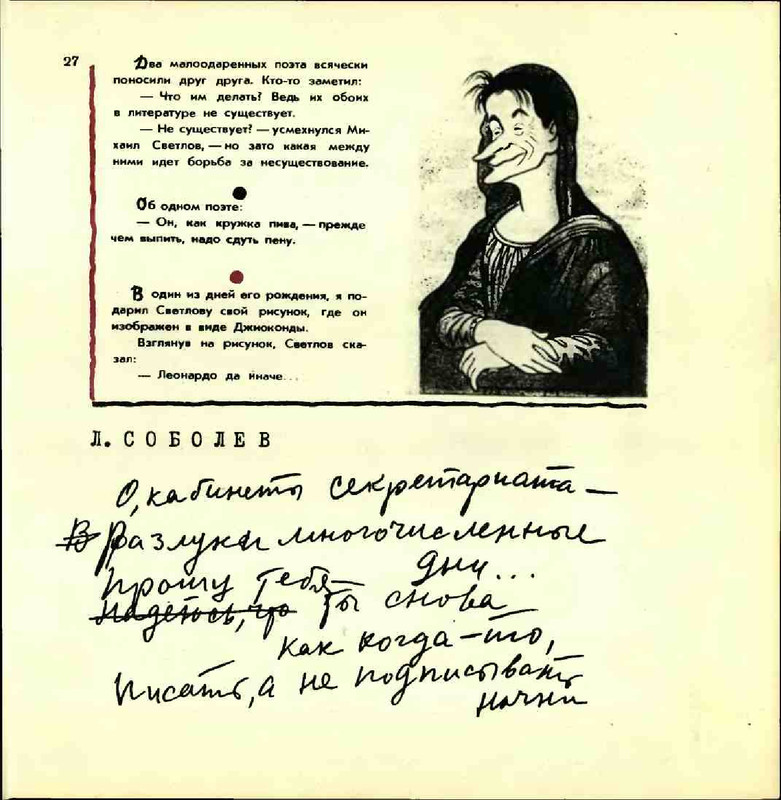 27
Два малоодаренных поэта всячески
поносили друг друга. Кто-то заметил:
— Что им делать? Ведь их обоих
в литературе не существует.
— Не существует? — усмехнулся Ми-
хаил Светлов, — но зато какая между
ними идет борьба за несуществование.
Об одном поэте:
— Он, как кружка пива, — прежде
чем выпить, надо сдуть пену.
В один из дней его рождения, я по-
дарил Светлову свой рисунок, где он
изображен в виде Джиоконды.
Взглянув на рисунок, Светлов ска-
зал:
— Леонардо да Иначе...
Л. СОБОЛЕВ
О, кабинеты секретариата —
В Разлуки многочисленные
дни...
Прошу тебя —
Надеюсь, что ты снова
как когда-то,
Писать, а не подписывать
начни